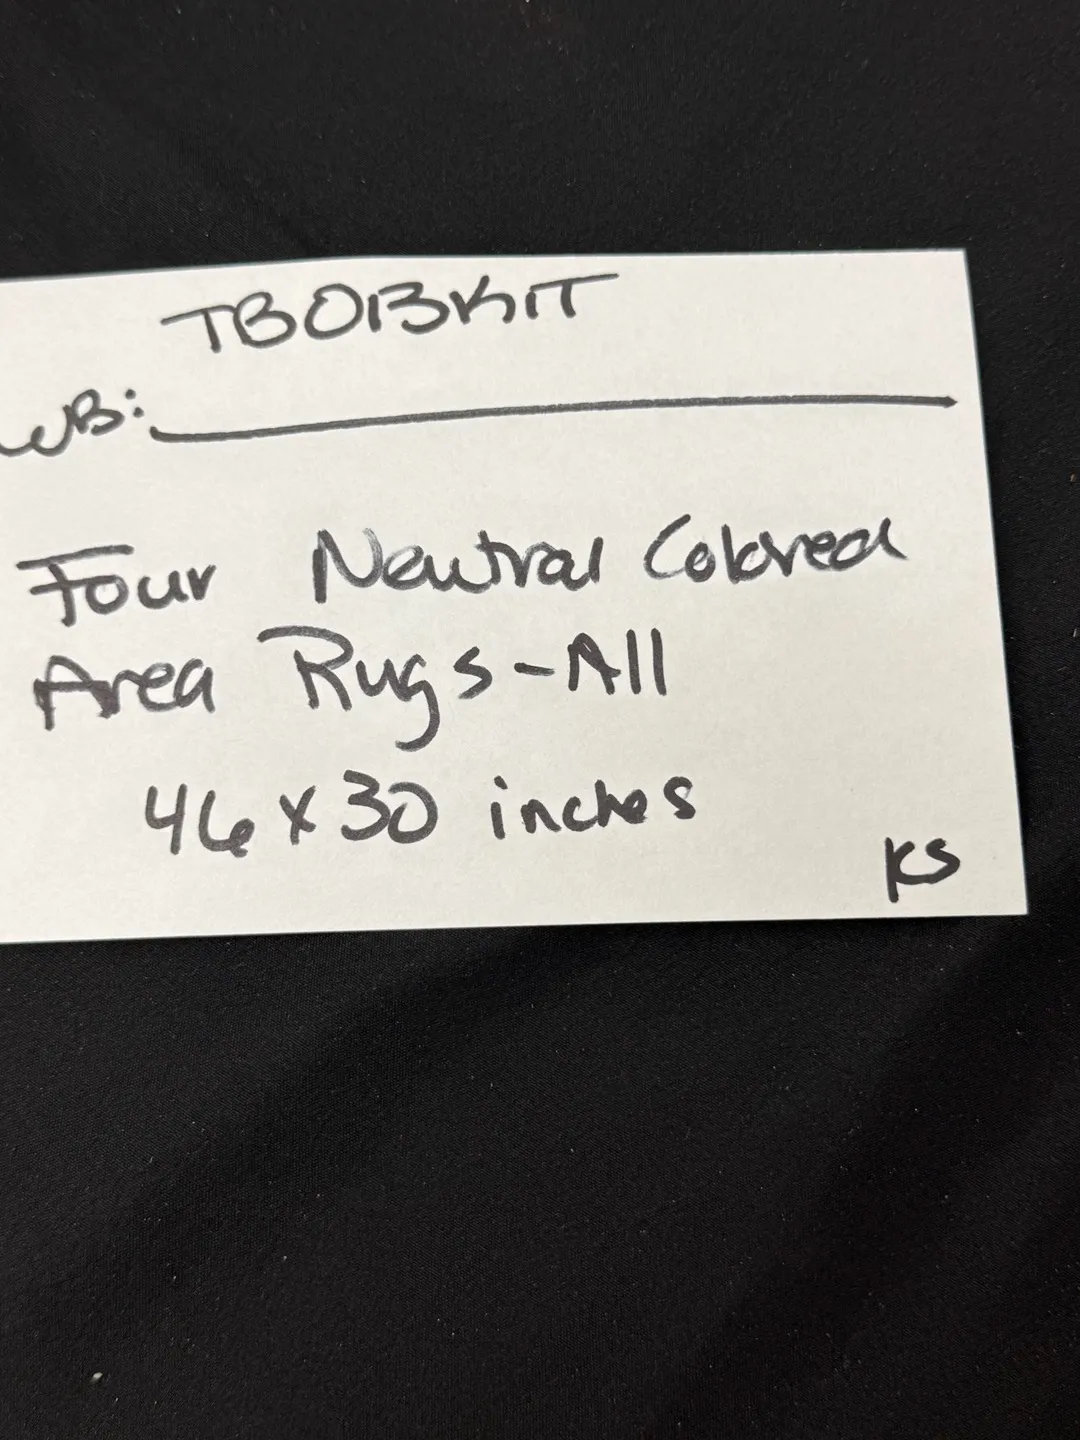 TBOBKIT
WB:
Four Neutral Colored
Area Rugs-All
46 x 30 inches
KS